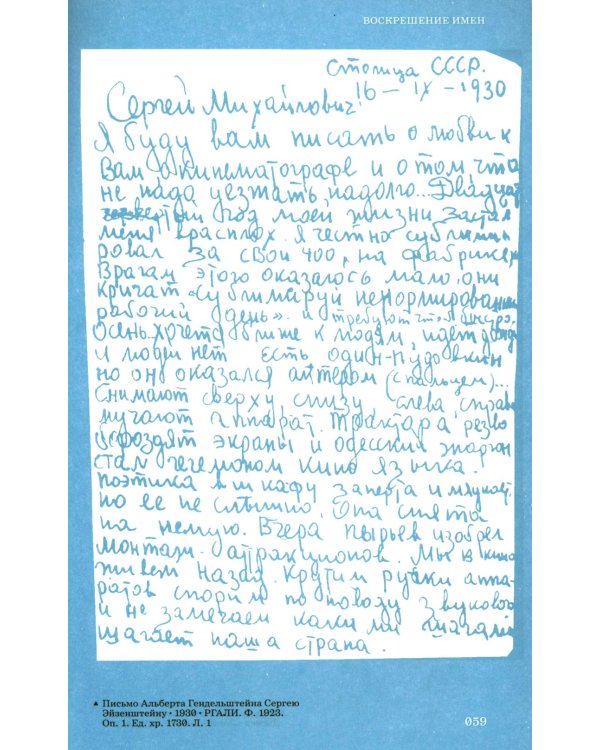 ВОСКРЕШЕНИЕ ИМЕН
Столица СССР.
16 – IX – 1930
Сергей Михайлович!
Я буду вам писать о любви к
Вам о кинематографе и о том, что
не надо уезжать надолго... Двадцат
год моей жизни застал
меня врасплох. Я честно сублими
ровал за свои 400, на фабрике.
Врагам этого оказалось мало, они
кричат "сублимируй ненормированный
рабочий день". и требуют чтоб быстро.
Осень хочется ближе к людям, идет дождь
и людей нет есть один – Пудовкин
но он оказался актером (с пальцем)...
Снимают сверху снизу слева, справа
мучают аппарат. Трактора резво
бороздят экраны и одесский жаргон
стал гегемоном кино языка.
Поэтика в шкафу заперта и мяукает,
но ее не слышно. Она снята
на немую. Вчера Пырьев изобрел
монтаж аттракционов. Мы в кино
живем назад. Крутим ручки аппа-
ратов спорим по поводу звукового
и не замечаем какими шагами
шагает наша страна.
▲ Письмо Альберта Гендельштейна Сергею
Эйзенштейну • 1930 • РГАЛИ. Ф. 1923.
Оп. 1. Ед. хр. 1730. Л. 1
059